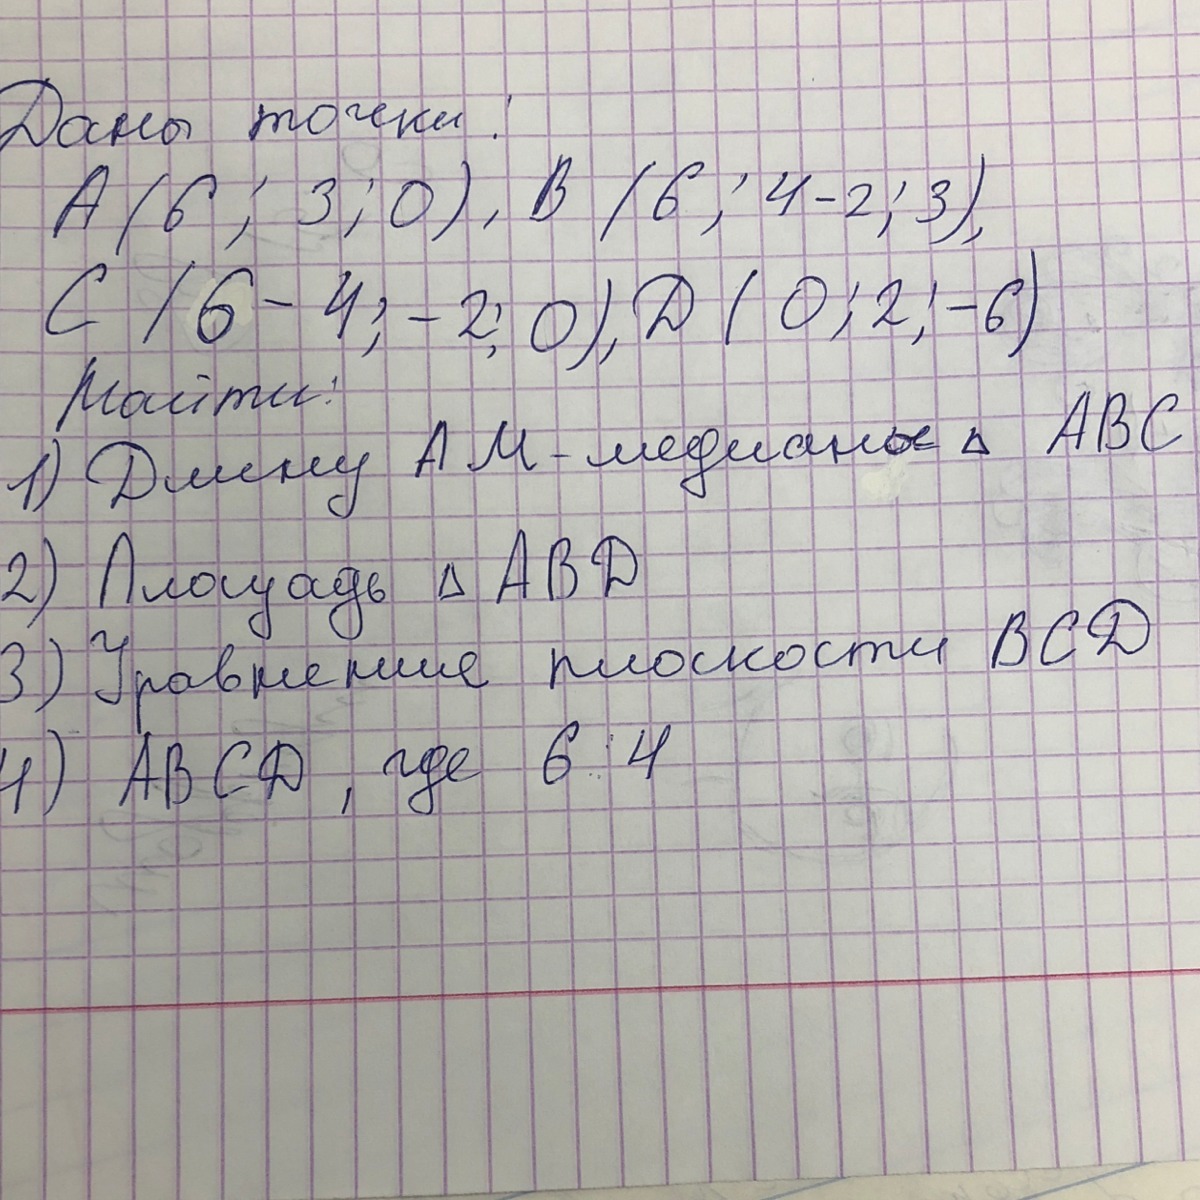 Даны точки:
A (6; 3; 0), B (6; 4-2; 3),
C (6-4; -2; 0), D (0; 2; -6)
Найти:
1) Длину AM-медианы △ ABC
2) Площадь △ ABD
3) Уравнение плоскости BCD
4) ABCD, где 6:4